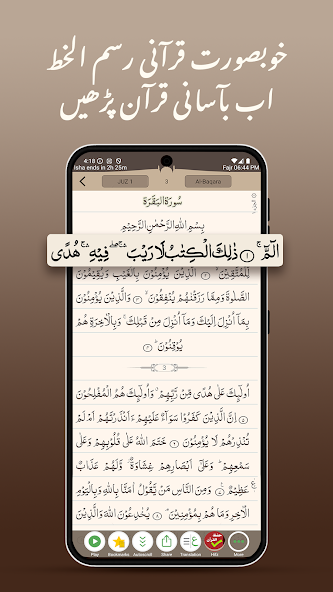 خوبصورت قرآنی رسم الخط
اب بآسانی قرآن پڑھیں
4:18
Isha ends in 2h 25m
Fajr 06:44 PM
JUZ 1
3
Al-Baqara
سُورَةُ الْبَقَرَة
بِسْمِ اللّٰهِ الرَّحْمٰنِ الرَّحِيْمِ
الٓمّٓ ۚ ۝١ ذٰلِكَ الْكِتٰبُ لَا رَيْبَ ۛۚ فِيْهِ ۛۚ هُدًى
لِّلْمُتَّقِيْنَ ۙ ۝٢ الَّذِيْنَ يُؤْمِنُوْنَ بِالْغَيْبِ وَيُقِيْمُوْنَ
الصَّلٰوةَ وَمِمَّا رَزَقْنٰهُمْ يُنْفِقُوْنَ ۙ ۝٣ وَالَّذِيْنَ يُؤْمِنُوْنَ
بِمَآ اُنْزِلَ اِلَيْكَ وَمَآ اُنْزِلَ مِنْ قَبْلِكَ ۚ وَبِالْاٰخِرَةِ هُمْ
يُوْقِنُوْنَ ۝٤
3
اُولٰٓئِكَ عَلٰى هُدًى مِّنْ رَّبِّهِمْ ۙ وَاُولٰٓئِكَ هُمُ الْمُفْلِحُوْنَ
۝٥ اِنَّ الَّذِيْنَ كَفَرُوْا سَوَآءٌ عَلَيْهِمْ ءَاَنْذَرْتَهُمْ اَمْ لَمْ
تُنْذِرْهُمْ لَا يُؤْمِنُوْنَ ۝٦ خَتَمَ اللّٰهُ عَلٰى قُلُوْبِهِمْ وَعَلٰى
سَمْعِهِمْ ۗ وَعَلٰٓى اَبْصَارِهِمْ غِشَاوَةٌ ۫ وَّلَهُمْ عَذَابٌ
عَظِيْمٌ ۝٧ وَمِنَ النَّاسِ مَنْ يَّقُوْلُ اٰمَنَّا بِاللّٰهِ وَبِالْيَوْمِ
الْاٰخِرِ وَمَا هُمْ بِمُؤْمِنِيْنَ ۘ ۝٨ يُخٰدِعُوْنَ اللّٰهَ وَالَّذِيْنَ
Play
Bookmarks
Autoscroll
Share
Translation
Hifz
More